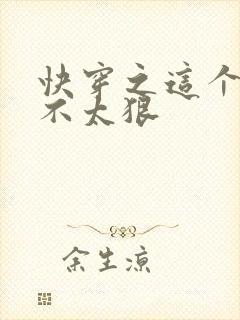 快穿之這个
不太狠
余生凉